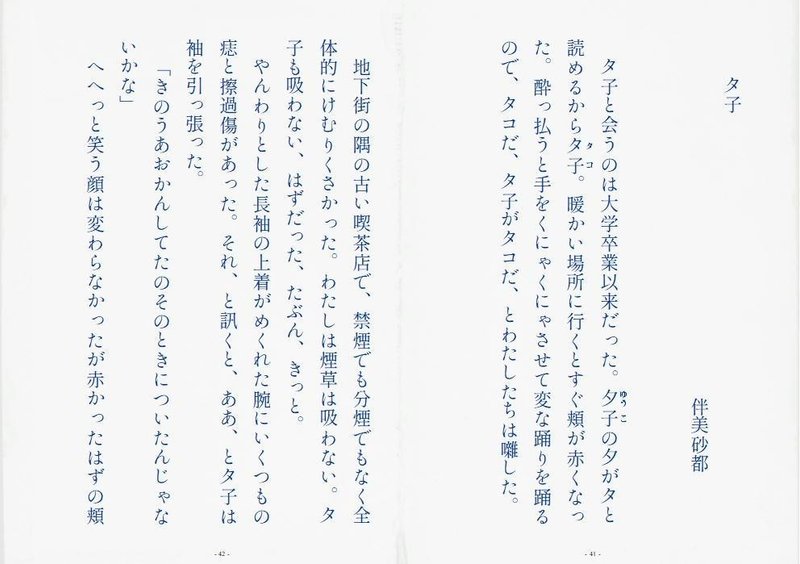 タ子
伴美砂都
タ子と会うのは大学卒業以来だった。夕子の夕がタと
ゆうこ
読めるからタ子。暖かい場所に行くとすぐ頬が赤くなっ
タコ
た。酔っ払うと手をくにゃくにゃさせて変な踊りを踊る
ので、タコだ、タ子がタコだ、とわたしたちは囃した。
- 41 -
地下街の隅の古い喫茶店で、禁煙でも分煙でもなく全
体的にけむりくさかった。わたしは煙草は吸わない。タ
子も吸わない、はずだった、たぶん、きっと。
やんわりとした長袖の上着がめくれた腕にいくつもの
痣と擦過傷があった。それ、と訊くと、ああ、とタ子は
袖を引っ張った。
「きのうあおかんしてたのそのときについたんじゃな
いかな」
へへっと笑う顔は変わらなかったが赤かったはずの頬
- 42 -